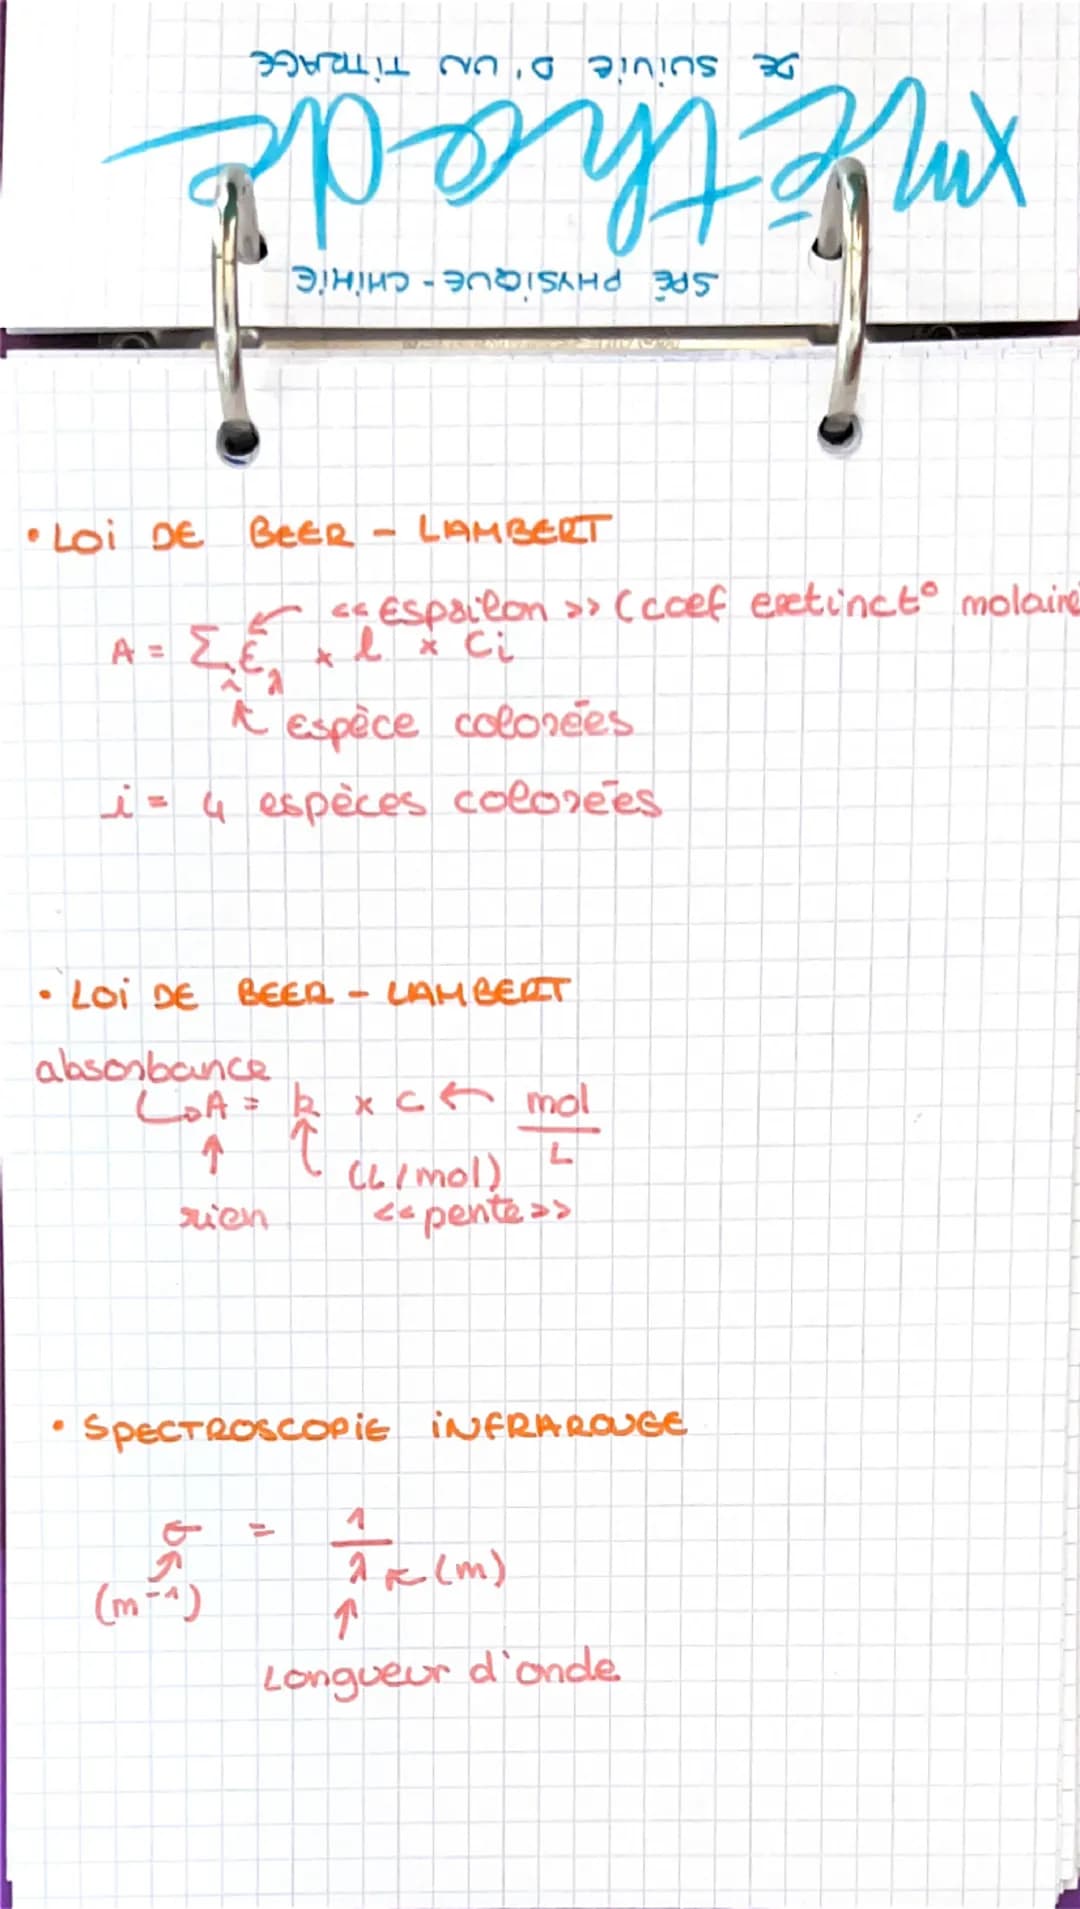 DE SUIVIE D'UN TITRAGE
xméthode
SPÉ PHYSIQUE - CHIMIE
• LOI DE BEER - LAMBERT
<< Espsilon >> (coef extinct° molaire
A = Σi ελ x l x Ci
↖ espèce colorées
i = 4 espèces colorées
• LOI DE BEER - LAMBERT
absorbance
↳ A = k x c ← mol
↑ ↑ (L/mol) L
rien << pente >>
• SPECTROSCOPIE INFRAROUGE
σ = 1
λ ↖ (m)
(m⁻¹) ↑
Longueur d'onde